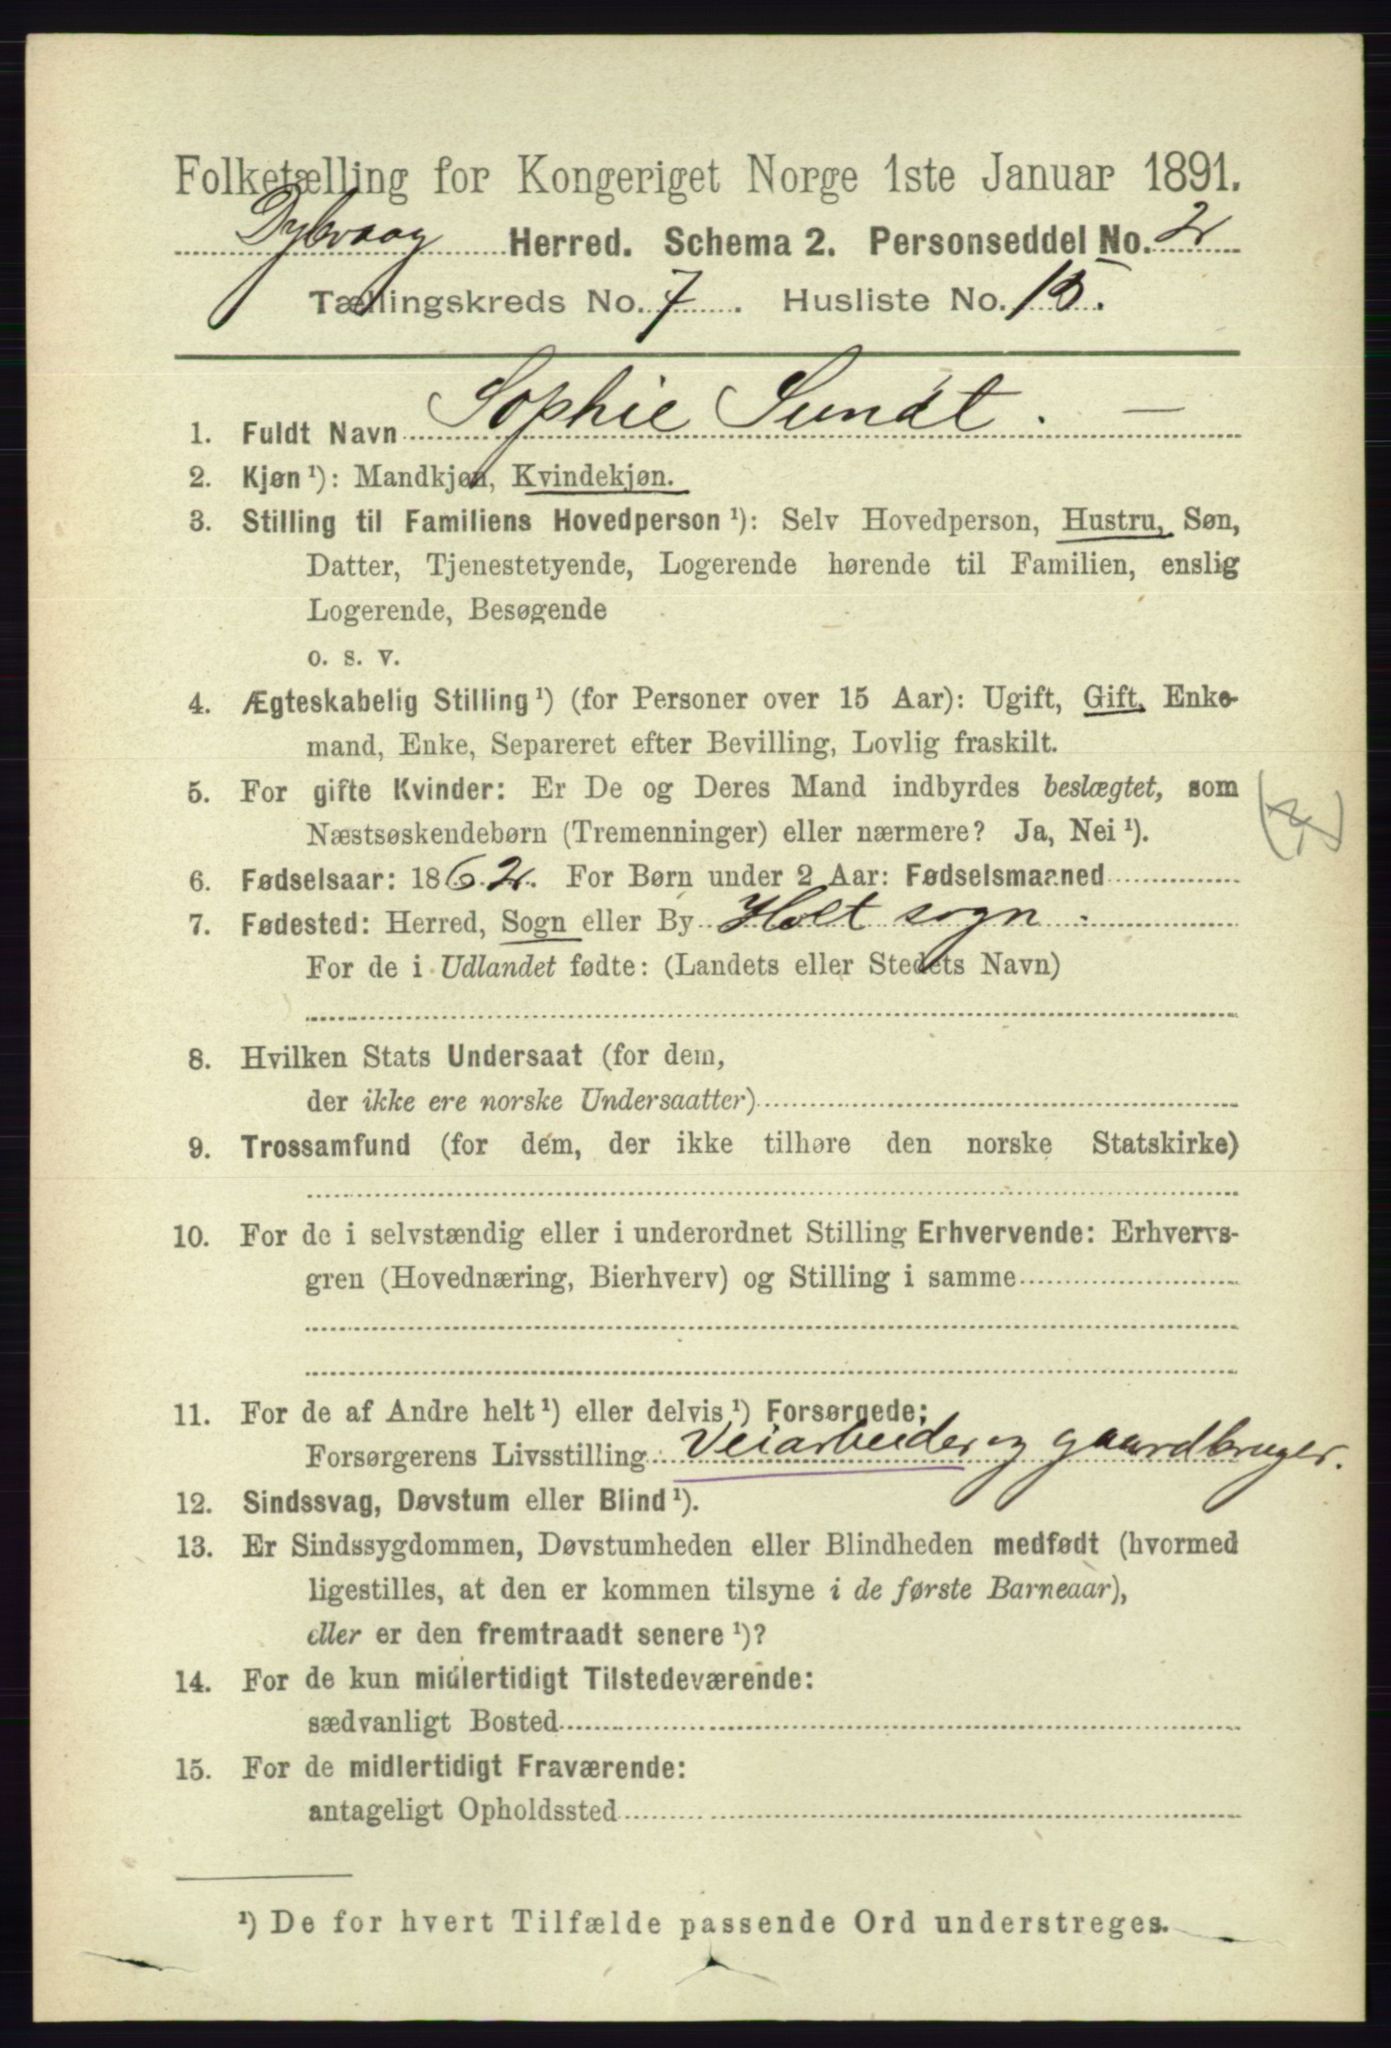 Folketælling for Kongeriget Norge 1ste Januar 1891.
Dybvaag Herred. Schema 2. Personseddel No. 2
Tællingskreds No. 7. Husliste No. 15.
1. Fuldt Navn Sophie Sundt.
2. Kjøn ¹): Mandkjøn, Kvindekjøn.
3. Stilling til Familiens Hovedperson ¹): Selv Hovedperson, Hustru, Søn,
Datter, Tjenestetyende, Logerende hørende til Familien, enslig
Logerende, Besøgende
o. s. v.
4. Ægteskabelig Stilling ¹) (for Personer over 15 Aar): Ugift, Gift, Enke-
mand, Enke, Separeret efter Bevilling, Lovlig fraskilt.
5. For gifte Kvinder: Er De og Deres Mand indbyrdes beslægtet, som
Næstsøskendebørn (Tremenninger) eller nærmere? Ja, Nei ¹).
6. Fødselsaar: 1862. For Børn under 2 Aar: Fødselsmaaned
7. Fødested: Herred, Sogn eller By Holt sogn.
For de i Udlandet fødte: (Landets eller Stedets Navn)
8. Hvilken Stats Undersaat (for dem,
der ikke ere norske Undersaatter)
9. Trossamfund (for dem, der ikke tilhøre den norske Statskirke)
10. For de i selvstændig eller i underordnet Stilling Erhvervende: Erhvervs-
gren (Hovednæring, Bierhverv) og Stilling i samme
11. For de af Andre helt ¹) eller delvis ¹) Forsørgede:
Forsørgerens Livsstilling Veiarbeider og gaardbruger.
12. Sindssvag, Døvstum eller Blind ¹).
13. Er Sindssygdommen, Døvstumheden eller Blindheden medfødt (hvormed
ligestilles, at den er kommen tilsyne i de første Barneaar),
eller er den fremtraadt senere ¹)?
14. For de kun midlertidigt Tilstedeværende:
sædvanligt Bosted
15. For de midlertidigt Fraværende:
antageligt Opholdssted
¹) De for hvert Tilfælde passende Ord understreges.